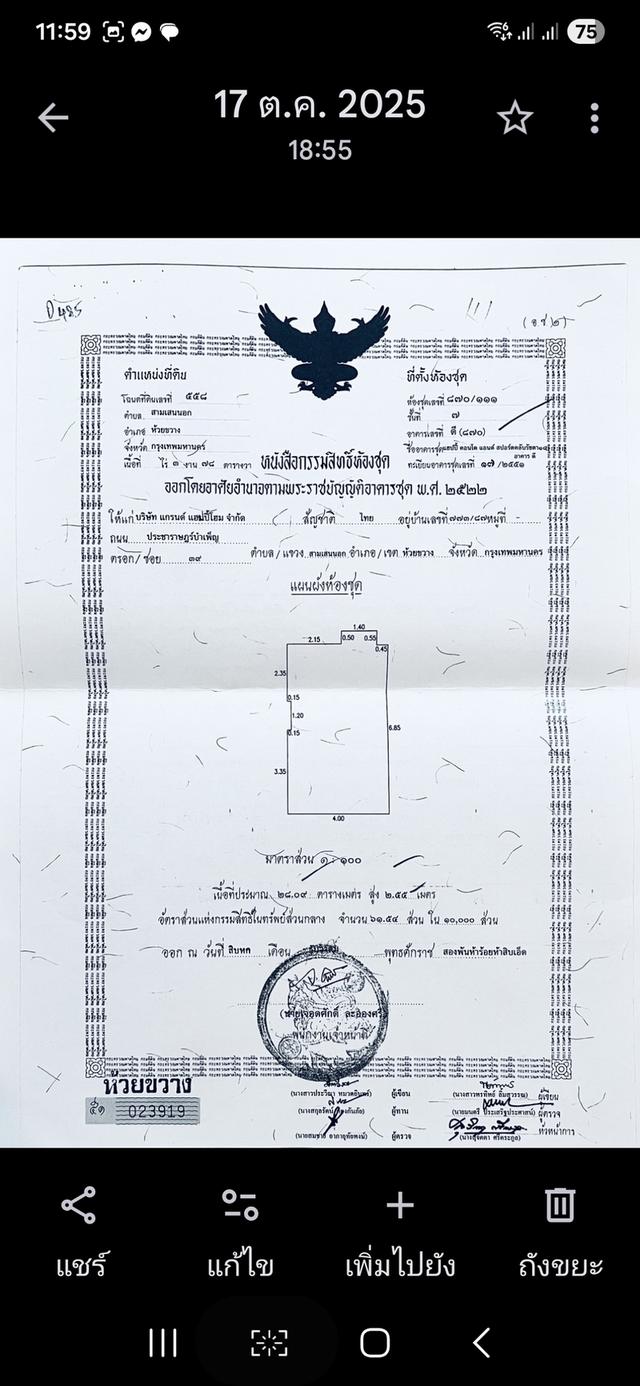 11:59
75
17 ต.ค. 2025
18:55
(อ.ช.๒)
ตำแหน่งที่ดิน
ที่ตั้งห้องชุด
โฉนดที่ดินเลขที่ ๕๕๘
ห้องชุดเลขที่ ๘๗๐/๑๑๑
ตำบล สามเสนนอก
ชั้นที่ ๗
อำเภอ ห้วยขวาง
อาคารเลขที่ ดี (๘๗๐)
จังหวัด กรุงเทพมหานคร
ชื่ออาคารชุด
อาคาร ดี
เนื้อที่ ไร่ ๓ งาน ๗๘ ตารางวา
ทะเบียนอาคารชุดเลขที่ ๑๗/๒๕๕๑
หนังสือกรรมสิทธิ์ห้องชุด
ออกโดยอาศัยอำนาจตามพระราชบัญญัติอาคารชุด พ.ศ. ๒๕๒๒
ให้แก่ บริษัท แกรนด์ แฮปปี้โฮม จำกัด สัญชาติ ไทย อยู่บ้านเลขที่ ๗๗๓/๘๗ หมู่ที่ -
ถนน ประชาราษฎร์บำเพ็ญ
ตรอก/ซอย ๓๙ ตำบล/แขวง สามเสนนอก อำเภอ/เขต ห้วยขวาง จังหวัด กรุงเทพมหานคร
แผนผังห้องชุด
1.40
2.15 0.50 0.55
0.45
2.35
0.15
1.20
0.15
6.85
3.35
4.00
มาตราส่วน ๑:๑๐๐
เนื้อที่ประมาณ ๒๘.๐๙ ตารางเมตร สูง ๒.๕๕ เมตร
อัตราส่วนแห่งกรรมสิทธิ์ในทรัพย์ส่วนกลาง จำนวน ๖๑.๕๔ ส่วน ใน ๑๐,๐๐๐ ส่วน
ออก ณ วันที่ สิบหก เดือน พุทธศักราช สองพันห้าร้อยห้าสิบเอ็ด
พนักงานเจ้าหน้าที่
ห้วยขวาง
023919
ผู้เขียน
ผู้ทาน
ผู้ตรวจ
ผู้เขียน
ผู้ตรวจ
หัวหน้าการ
แชร์
แก้ไข
เพิ่มไปยัง
ถังขยะ